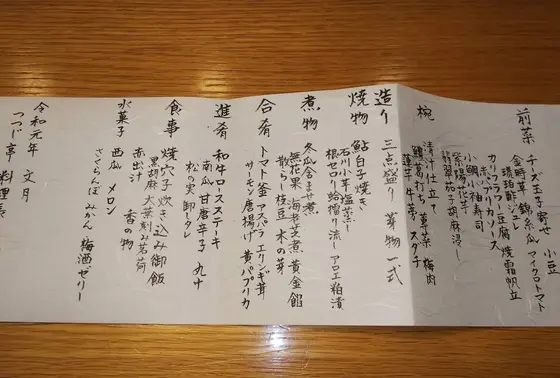 前菜
チーズ玉子寄せ 小豆
金時草 錦糸瓜 マイクロトマト
琥珀酢ジュレ
カリフラワー豆腐 焼霜帆立
小鯛小袖寿司
翡翠茄子胡麻浸し
椀
清汁仕立て
鱧葛打ち 蓴菜 梅肉
蓮芋 牛蒡 スダチ
造り 三点盛り 芽物一式
焼物 鮎白子焼き
石川小芋塩蒸し
根セロリ蛤摺り流し アロエ粕漬
煮物 冬瓜含ませ煮
無花果 海老芝煮 黄金餡
散らし 焼豆 木の芽
合肴 トマト釜 アスパラ エリンギ茸
サーモン唐揚げ 黄パプリカ
進肴 和牛ロースステーキ
南瓜 甘唐辛子 丸十
松の実 卸しタレ
食事 焼穴子炊き込み御飯
黒胡麻 大葉 刻み茗荷
赤出汁 香の物
水菓子 西瓜 メロン
さくらんぼ みかん 梅酒ゼリー
令和元年 文月
つつじ亭 料理長